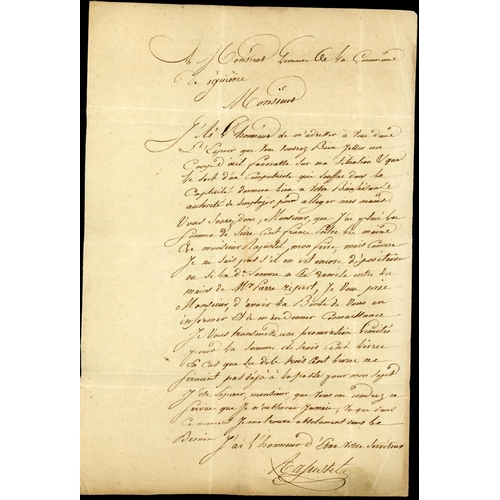 A Monsieur Lemaire de la Commune
de
Monsieur
J'ai l'honneur de m'adresser à vous dans
L'Espoir que vous voudrez Bien Jetter un
Coup d'œil favorable Sur ma Situation Vu que
le Sort d'un Compatriote qui Souffre dans la
Captivité donnera lieu à votre
authorité de Semployer pour alleger mes maux
Vous Saurez donc, Monsieur, que J'ai placé la
Somme de Seize Cent francs Entre les mains
de monsieur Raquetel, mon frere, mais Comme
Je ne Sais pas S'il en est encore dépositaire
ou Si la dte Somme a été remise entre les
mains de Mr Pierre ripert, Je Vous prie
Monsieur, d'avoir la Bonté de Vous en
informer Et de m'en Donner Connaissance
Je Vous transmets une procuration limitée
pour la Somme de trois Cent livres
En Cas que les dits trois Cent livres ne
fussent pas déjà à la poste pour mon Sujet
J'ose Esperer, monsieur que Vous me rendrez ce
Service que Je n'oublierai Jamais, Vu que dans
Ce moment Je me trouve absolument dans le
Besoin J'ai l'honneur d'Etre votre Serviteur